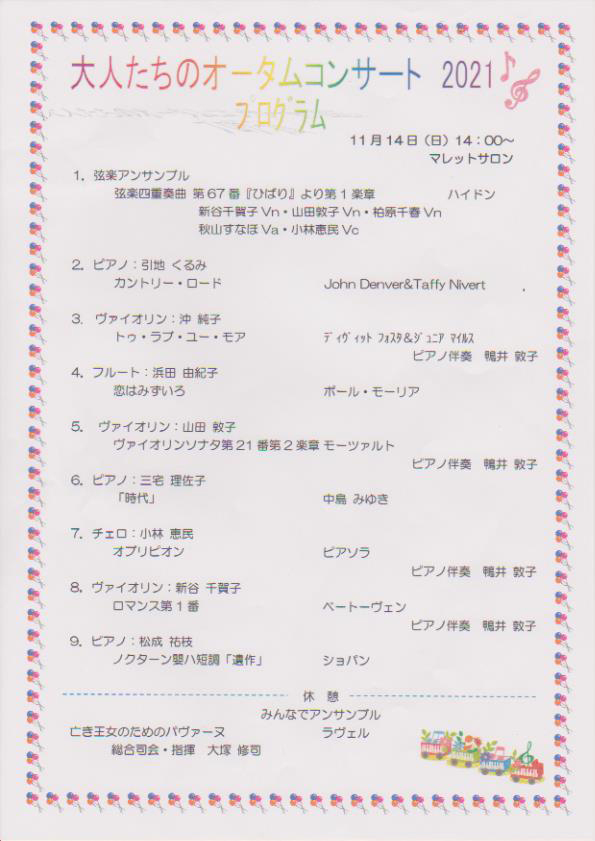 大人たちのオータムコンサート 2021
プログラム
11月14日(日)14:00~
マレットサロン
1. 弦楽アンサンブル
弦楽四重奏曲 第67番『ひばり』より第1楽章 ハイドン
新谷千賀子Vn・山田敦子Vn・柏原千春Vn
秋山すなほVa・小林恵民Vc
2. ピアノ:引地 くるみ
カントリー・ロード John Denver&Taffy Nivert
3. ヴァイオリン:沖 純子
トゥ・ラブ・ユー・モア ディヴィット フォスタ&ジュニア マイルス
ピアノ伴奏 鴨井 敦子
4. フルート:浜田 由紀子
恋はみずいろ ポール・モーリア
5. ヴァイオリン:山田 敦子
ヴァイオリンソナタ第21番第2楽章 モーツァルト
ピアノ伴奏 鴨井 敦子
6. ピアノ:三宅 理佐子
「時代」 中島 みゆき
7. チェロ:小林 恵民
オブリビオン ピアソラ
ピアノ伴奏 鴨井 敦子
8. ヴァイオリン:新谷 千賀子
ロマンス第1番 ベートーヴェン
ピアノ伴奏 鴨井 敦子
9. ピアノ:松成 祐枝
ノクターン嬰ハ短調「遺作」 ショパン
休 憩
みんなでアンサンブル
亡き王女のためのパヴァーヌ ラヴェル
総合司会・指揮 大塚 修司